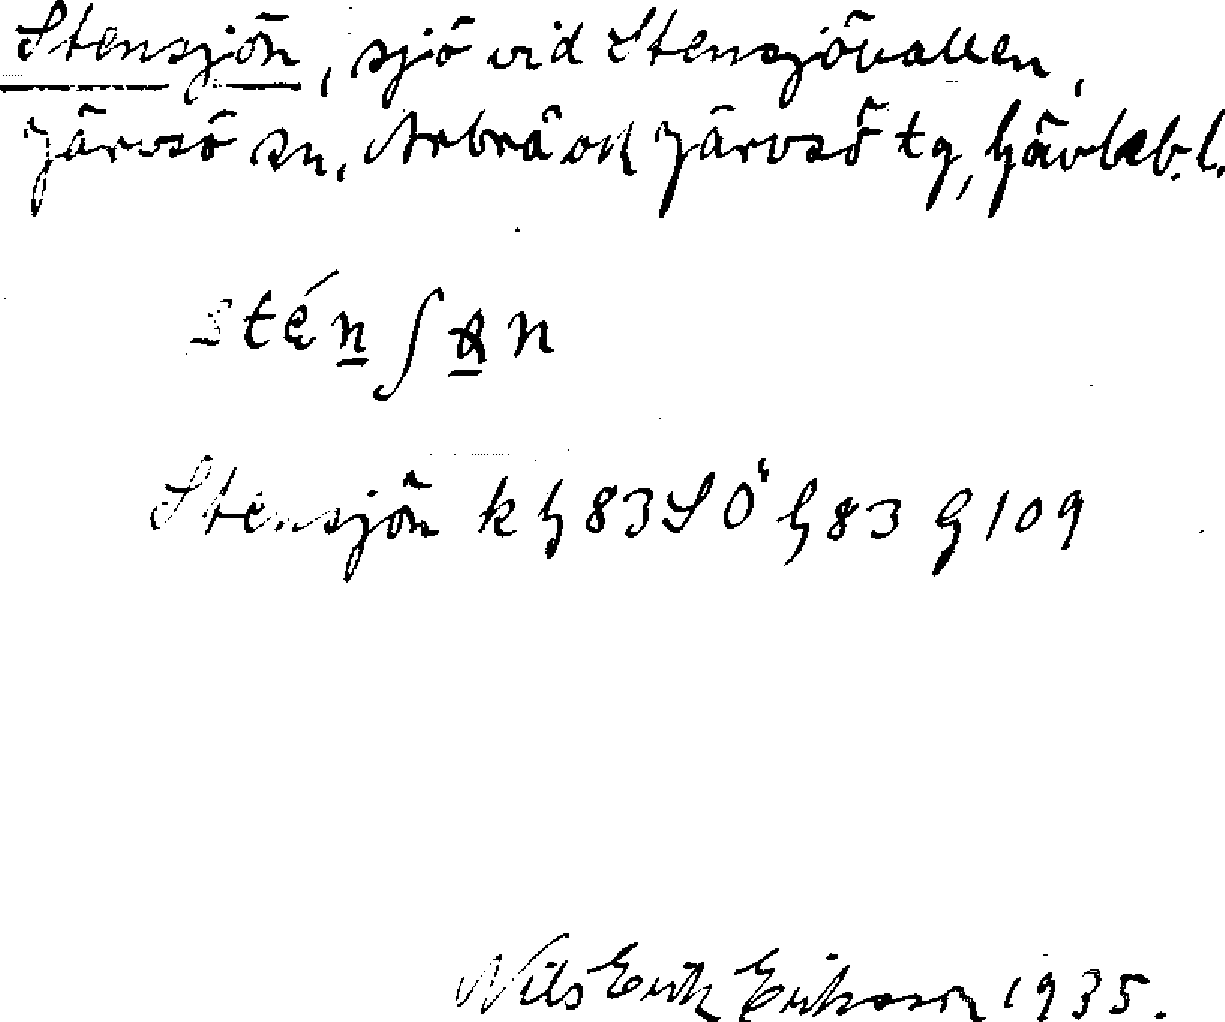 Stensjön, sjö vid Stensjövallen,
Järvsö sn, Arbrå och Järvsö tg, Gävleb. l.
stén
Stensjön k G 83 S Ö G 83 G 109
Nils Erik Eriksson 1935.